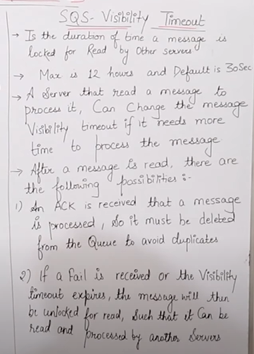 SQS- Visibility Timeout
→ Is the duration of time a message is
locked for Read by Other servers
→ Max is 12 hours and Default is 30Sec
→ A Server that read a message to
process it, Can Change the message
Visibility timeout if it needs more
time to process the message
→ After a message is read, there are
the following possibilities :-
1) An ACK is received that a message
is processed, so it must be deleted
from the Queue to avoid duplicates
2) If a Fail is received or the Visibility
timeout expires, the message will then
be unlocked for read, Such that it Can be
read and processed by another Servers